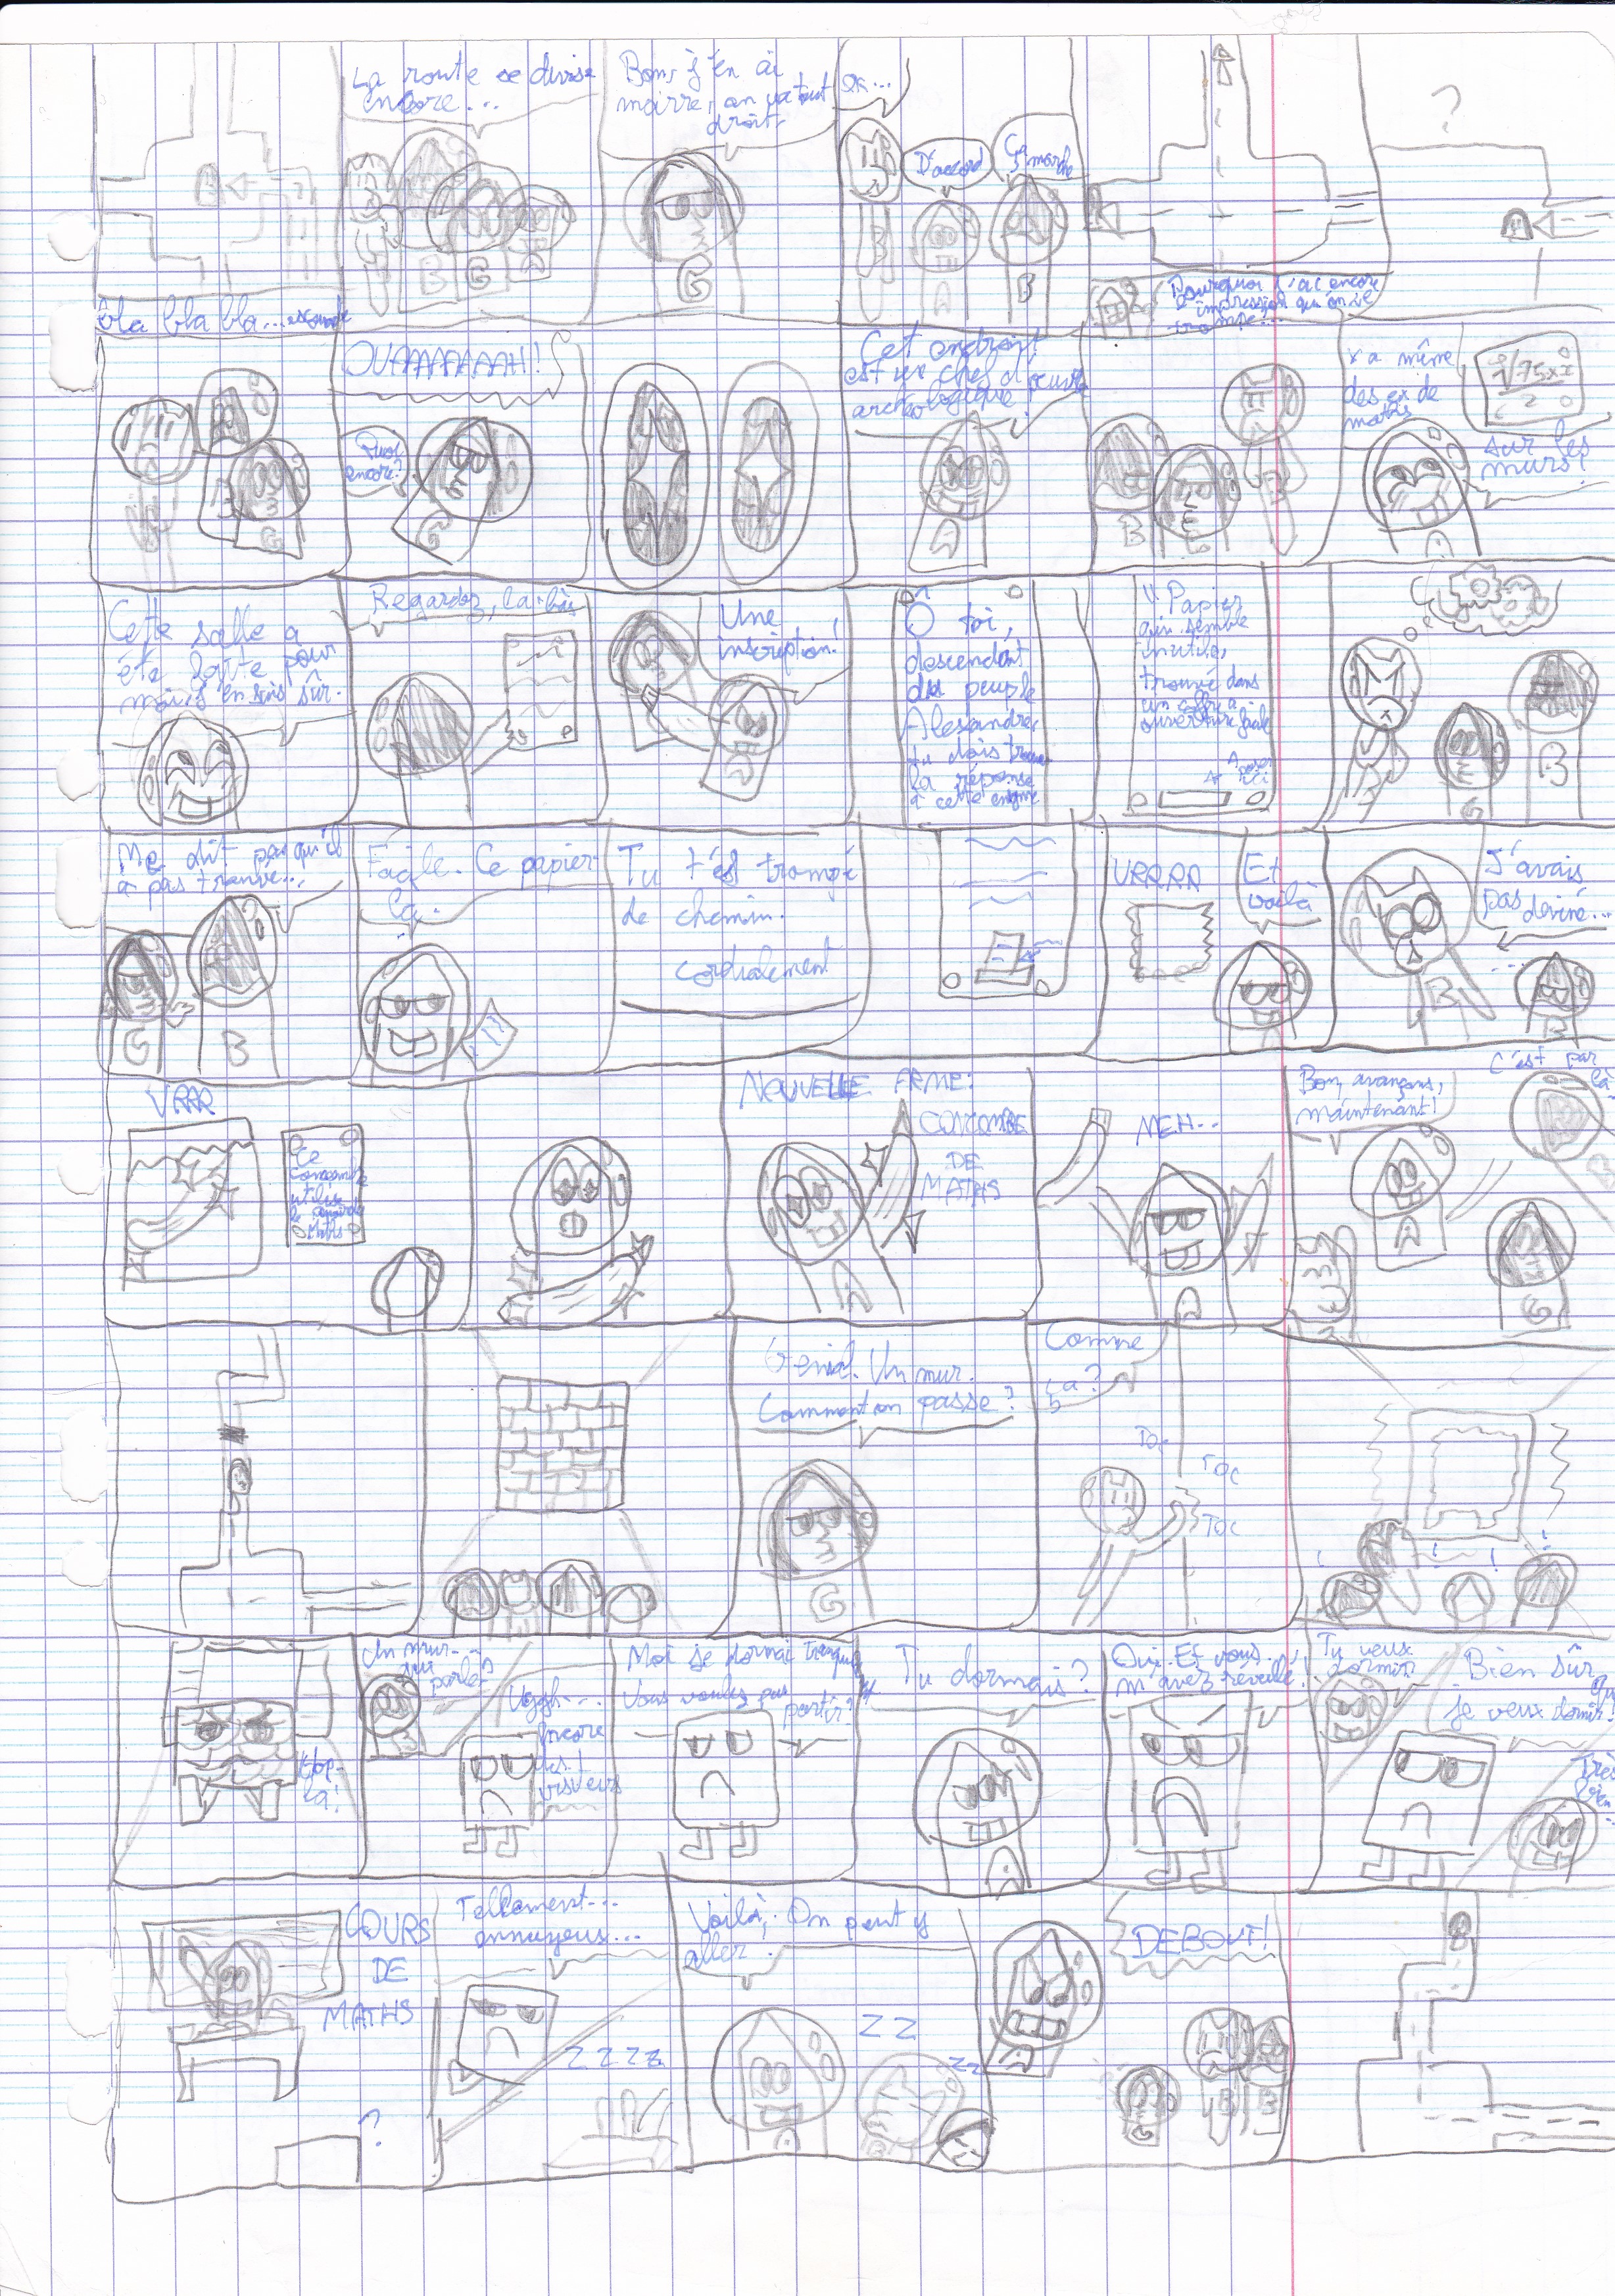 La route se divise
encore...
Bon, j'en ai
marre, on va tout
droit.
OK...
D'accord
Ça
marche
?
Bla bla bla...
Pourquoi j'ai encore
impression qu'on se
trompe...
OUAAAAAAAAH!!
Quoi
encore?
Cet endroit
est un chef d'oeuvre
archéologique!
Y a même
des ex de
maths
sur les
murs!
Cette salle a
été faite pour
moi j'en suis sûr.
Regardez, là-bàs
Une
inscription!
Ô toi,
descendant
du peuple
Alexandre,
tu dois trouver
la réponse
à cette énigme
V. Papier
qui semble
inutile,
trouvé dans
un coffre à
ouverture facile
A poser
ici
Me dit pas qu'il
a pas trouvé...
Facile. Ce papier
là.
Tu t'es trompé
de chemin.
Cordialement
VRRRR
Et
voilà
J'avais
pas deviné...
VRRR
Ce
concombre
utilise
le pouvoir
des
Maths
NOUVELLE ARME:
CONCOMBRE
DE
MATHS
MEH...
Bon, avançons,
maintenant!
C'est par
là
Génial. Un mur.
Comment on passe?
Comme
ça?
TOC
TOC
TOC
! ! ! !
Hop-
là!
Un mur...
qui
parle?
Uggh...
Encore
des
visiteurs
Moi je dormai tranquille
Vous voulez pas
partir?
Tu dormais?
Oui. Et vous
m'avez réveillé!
Tu veux
dormir?
Bien sûr
que
je veux dormir!
Très
bien...
COURS
DE
MATHS
?
Tellement...
ennuyeux...
ZZZZ
Voilà. On peut y
aller.
ZZ
ZZ
DEBOUT!